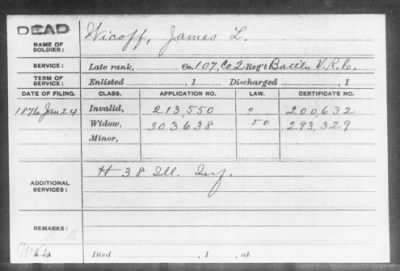 DEAD
NAME OF SOLDIER: Wicoff, James L.
SERVICE: Late rank, Co. 107, Co 2 Reg't Battln V.R.C.
TERM OF SERVICE: Enlisted , 1 Discharged , 1
DATE OF FILING. CLASS. APPLICATION NO. LAW. CERTIFICATE NO.
1876 Jan 24 Invalid, 213,550 0 200,632
Widow, 303,638 50 293,329
Minor,
ADDITIONAL SERVICES: H 38 Ill. Inf.
REMARKS:
Died , 1 , at